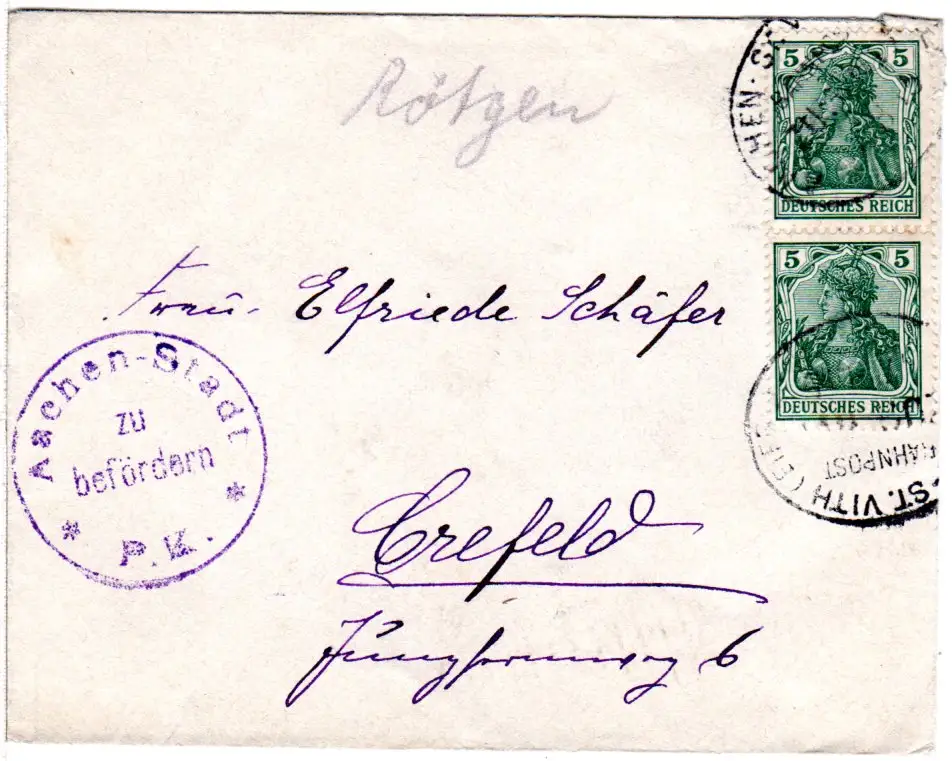 Rötgen
5 5
DEUTSCHES REICH
5 5
DEUTSCHES REICH
ST. VITH
BAHNPOST
Frau Elfriede Schäfer
Aachen-Stadt
zu
befördern
P.K.
Crefeld
Jungfernweg 6